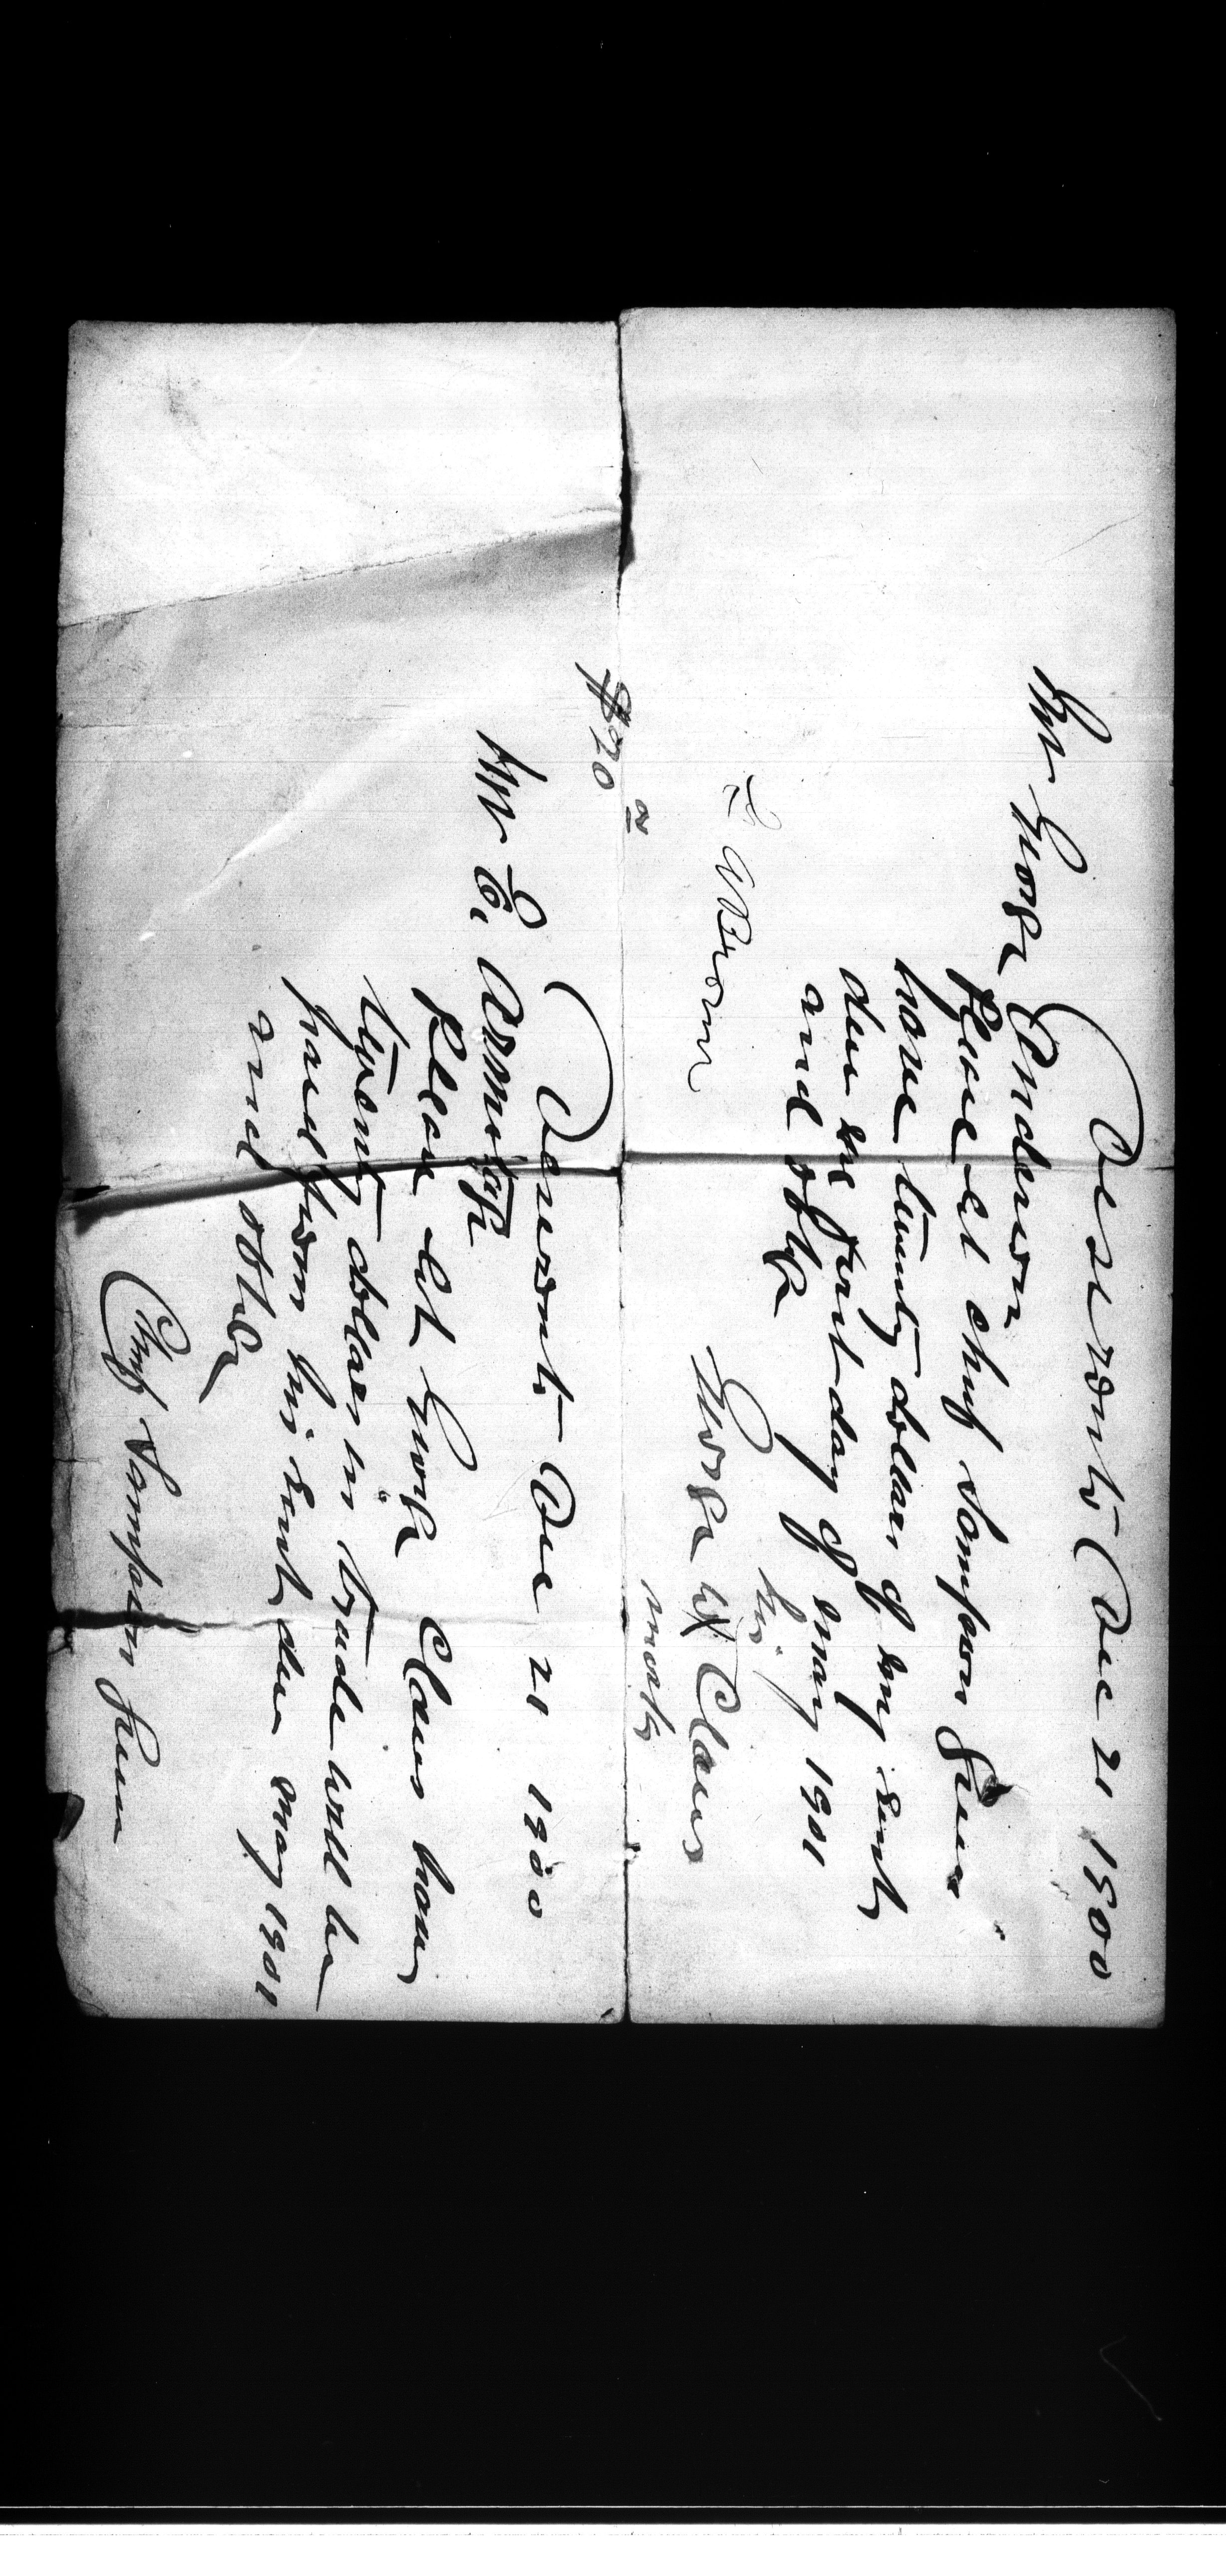 Deseronto Dec 21 1900
Mr George Anderson
Please let chief Sampson Green
have twenty dollars of my rent
due me first day of may 1901
and oblige
his
George W X Claus
mark
$20
Deseronto Dec 21 1900
Mr E.
Please let George Claus have
twenty dollars in trade will be
paid from his rent due may 1901
and oblig
Chief Sampson Green